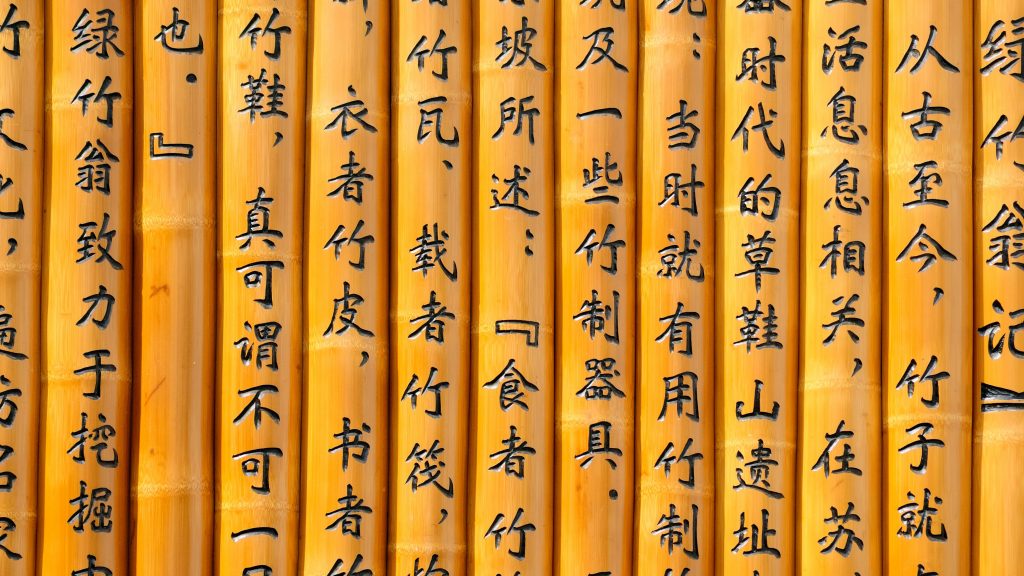 绿竹翁记』
从古至今,竹子就
活息息相关,在苏
器时代的草鞋山遗址
现:当时就有用竹制
及一些竹制器具.
坡所述:『食者竹
竹瓦、载者竹筏,
,衣者竹皮,书者竹
竹鞋,真可谓不可一
也.』
绿竹翁致力于挖掘中
竹文化,遍访名